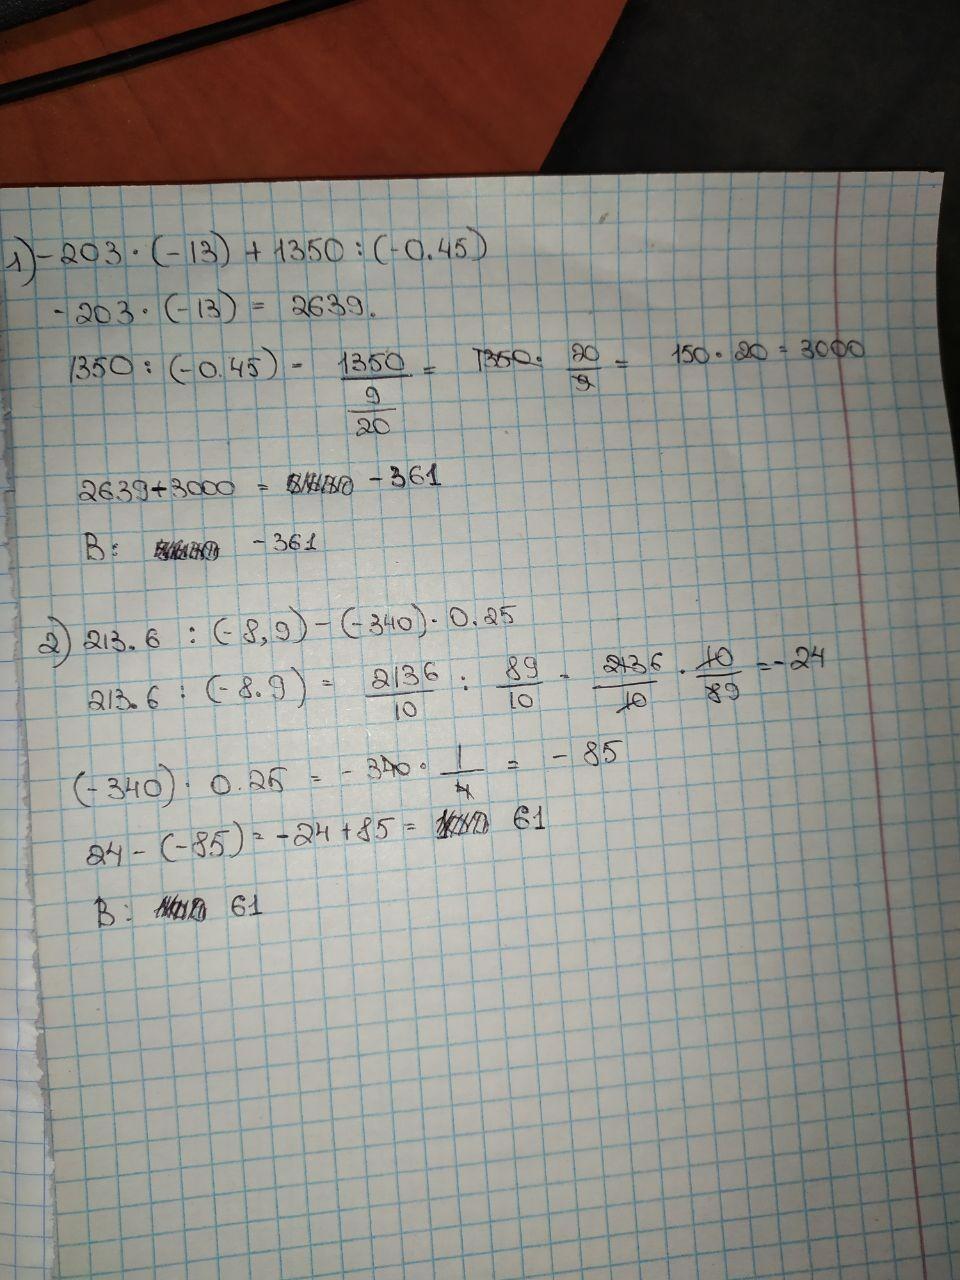 1) -203 · (-13) + 1350 : (-0.45)
-203 · (-13) = 2639.
1350 : (-0.45) = 1350/(9/20) = 1350 · 20/9 = 150 · 20 = 3000
2639+3000 = -361
В: -361
2) 213.6 : (-8,9) - (-340) · 0.25
213.6 : (-8.9) = 2136/10 : 89/10 = 2136/10 · 10/89 = -24
(-340) · 0.25 = -340 · 1/4 = -85
24 - (-85) = -24 + 85 = 61
В: 61